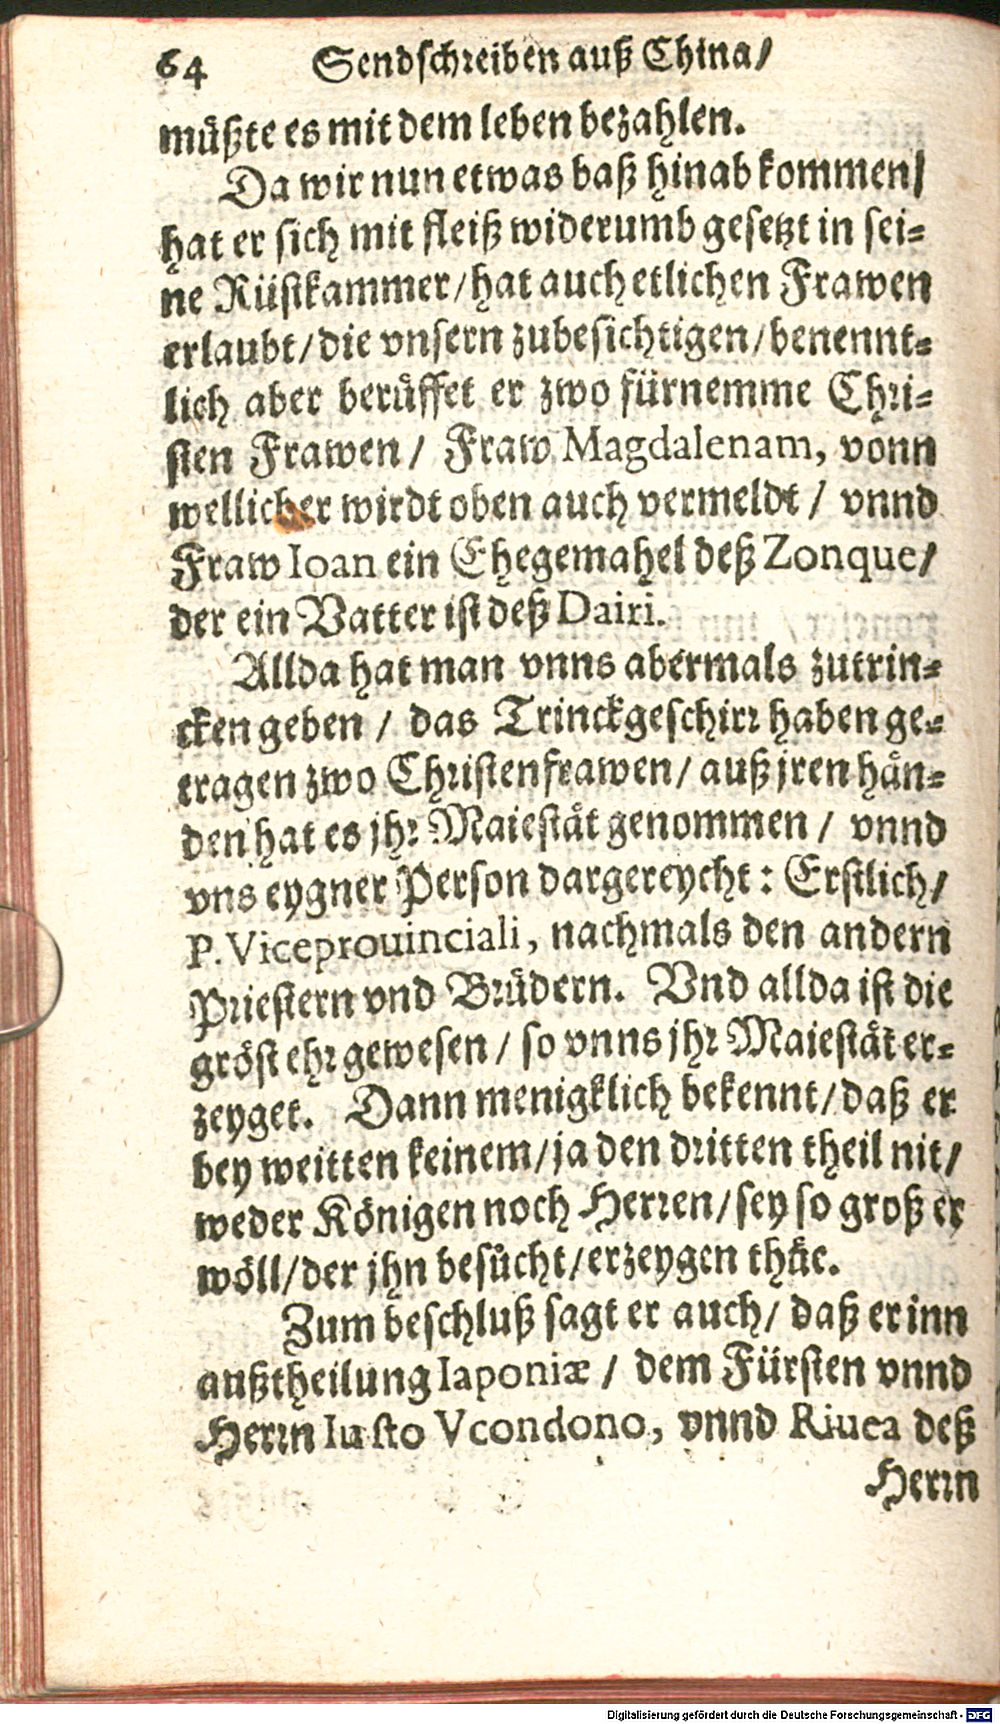 64 Sendschreiben auß China/
müßte es mit dem leben bezahlen.
Da wir nun etwas baß hinab kommen/
hat er sich mit fleiß widerumb gesetzt in sei-
ne Rüstkammer/hat auch etlichen Frawen
erlaubt/die vnsern zubesichtigen/benennt-
lich aber berüffet er zwo fürnemme Chri-
sten Frawen/ Fraw Magdalenam, vonn
wellicher wirdt oben auch vermeldt/ vnnd
Fraw Ioan ein Ehegemahel deß Zonque/
der ein Vatter ist deß Dairi.
Allda hat man vnns abermals zutrin-
cken geben/ das Trinckgeschirr haben ge-
tragen zwo Christenfrawen/ auß jren hän-
den hat es jhr Maiestät genommen/ vnnd
vns eygner Person dargereycht: Erstlich/
P. Viceprouinciali, nachmals den andern
Priestern vnd Brüdern. Vnd allda ist die
gröst ehr gewesen/ so vnns jhr Maiestät er-
zeyget. Dann menigklich bekennt/daß er
bey weitten keinem/ja den dritten theil nit/
weder Königen noch Herren/sey so groß er
wöll/der jhn besücht/erzeygen thüe.
Zum beschluß sagt er auch/ daß er inn
außtheilung Iaponiæ/ dem Fürsten vnnd
Herrn Iusto Vcondono, vnnd Riuca deß
Herrn
Digitalisierung gefördert durch die Deutsche Forschungsgemeinschaft - DFG